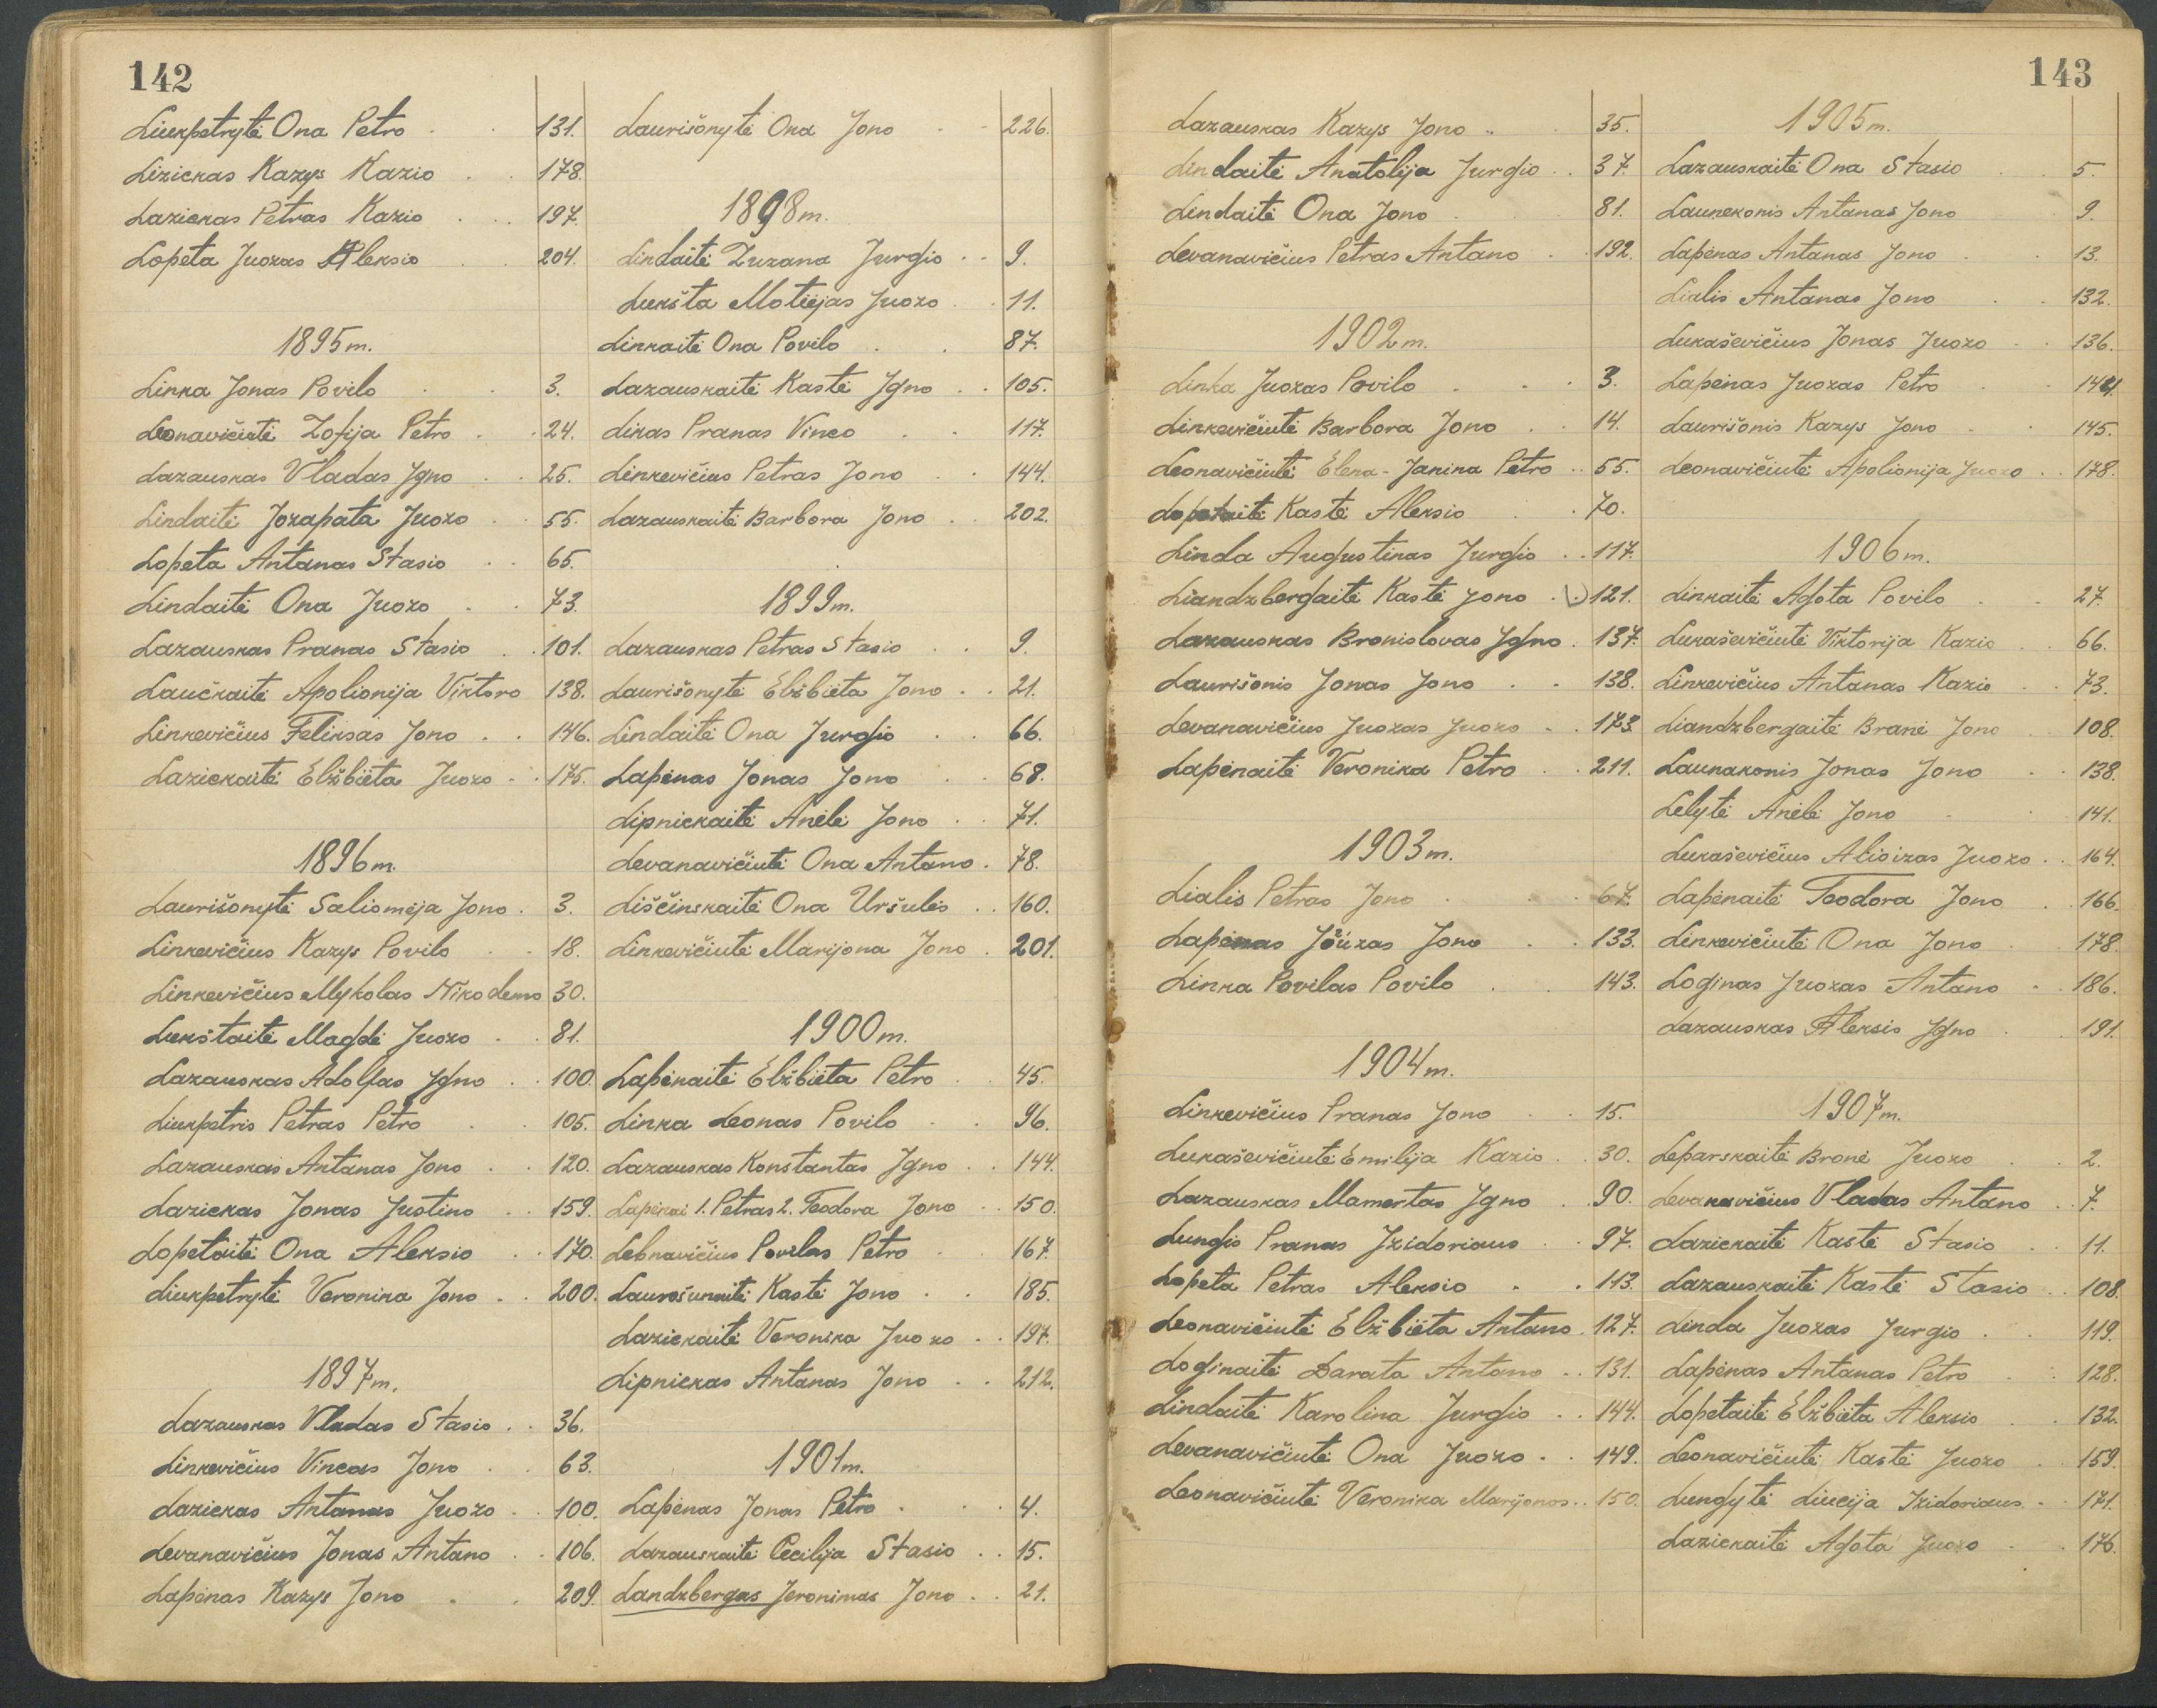 142
Liukpetrytė Ona Petro 131.
Lizickas Kazys Kazio 178.
Lazickas Petras Kazio 197.
Lopeta Juozas Aleksio 204.
1895 m.
Linka Jonas Povilo 3.
Leonavičiutė Zofija Petro 24.
Lazauskas Vladas Igno 25.
Lindaitė Jozapata Juozo 55.
Lopeta Antanas Stasio 65.
Lindaitė Ona Juozo 73.
Lazauskas Pranas Stasio 101.
Laučkaitė Apolionija Viktoro 138.
Linkevičius Feliksas Jono 146.
Lazickaitė Elžbieta Juozo 175.
1896 m.
Laurišonytė Saliomėja Jono 3.
Linkevičius Kazys Povilo 18.
Linkevičius Mykolas Nikodemo 30.
Lukštaitė Magdė Juozo 81.
Lazauskas Adolfas Igno 100.
Liukpetris Petras Petro 105.
Lazauskas Antanas Jono 120.
Lazickas Jonas Justino 159.
Lopetaitė Ona Aleksio 170.
Liukpetrytė Veronika Jono 200.
1897 m.
Lazauskas Vladas Stasio 36.
Linkevičius Vincas Jono 63.
Lazickas Antanas Juozo 100.
Levanavičius Jonas Antano 106.
Lapėnas Kazys Jono 209.
Laurišonytė Ona Jono 226.
1898 m.
Lindaitė Zuzana Jurgio 9.
Lukšta Motiejas Juozo 11.
Linkaitė Ona Povilo 87.
Lazauskaitė Kastė Igno 105.
Likas Pranas Vinco 117.
Linkevičius Petras Jono 144.
Lazauskaitė Barbora Jono 202.
1899 m.
Lazauskas Petras Stasio 9.
Laurišonytė Elžbieta Jono 21.
Lindaitė Ona Jurgio 66.
Lapėnas Jonas Jono 68.
Lipnickaitė Anėlė Jono 71.
Levanavičiutė Ona Antano 78.
Liščinskaitė Ona Uršulės 160.
Linkevičiutė Marijona Jono 201.
1900 m.
Lapėnaitė Elžbieta Petro 45.
Linka Leonas Povilo 96.
Lazauskas Konstantas Igno 144.
Lapėnai 1. Petras 2. Teodora Jono 150.
Lebnavičius Povilas Petro 167.
Laurošunaitė Kastė Jono 185.
Lazickaitė Veronika Juozo 197.
Lipnickas Antanas Jono 212.
1901 m.
Lapėnas Jonas Petro 4.
Lazauskaitė Cecilija Stasio 15.
Landzbergas Jeronimas Jono 21.
143
Lazauskas Kazys Jono 35.
Lindaitė Anatolija Jurgio 37.
Lindaitė Ona Jono 81.
Levanavičius Petras Antano 192.
1902 m.
Linka Juozas Povilo 3.
Linkevičiutė Barbora Jono 14.
Leonavičiutė Elena-Janina Petro 55.
Lopetaitė Kastė Aleksio 70.
Linda Augustinas Jurgio 117.
Liandzbergaitė Kastė Jono 121.
Lazauskas Bronislovas Igno 137.
Laurišonis Jonas Jono 138.
Levanavičius Juozas Juozo 173.
Lapėnaitė Veronika Petro 211.
1903 m.
Lialis Petras Jono 67.
Lapėnas Jono 133.
Linka Povilas Povilo 143.
1904 m.
Linkevičius Pranas Jono 15.
Lukaševičiutė Emilija Kazio 30.
Lazauskas Mamertas Igno 90.
Lungis Pranas Izidoriaus 97.
Lopeta Petras Aleksio 113.
Leonavičiutė Elžbieta Antano 127.
Loginaitė Darata Antano 131.
Lindaitė Karolina Jurgio 144.
Levanavičiutė Ona Juozo 149.
Leonavičiutė Veronika Marijonos 150.
1905 m.
Lazauskaitė Ona Stasio 5.
Launekonis Antanas Jono 9.
Lapėnas Antanas Jono 13.
Lialis Antanas Jono 132.
Lukaševičius Jonas Juozo 136.
Lapėnas Juozas Petro
Laurišonis Kazys Jono 145.
Leonavičiutė Apolionija Juozo 178.
1906 m.
Linkaitė Agota Povilo 27.
Lukaševičiutė Viktorija Kazio 66.
Linkevičius Antanas Kazio 73.
Liandzbergaitė Branė Jono 108.
Launakonis Jonas Jono 138.
Lelytė Anėlė Jono 141.
Lukaševičius Alioizas Juozo 164.
Lapėnaitė Teodora Jono 166.
Linkevičiutė Ona Jono 178.
Loginas Juozas Antano 186.
Lazauskas Aleksis Igno 191.
1907 m.
Leparskaitė Bronė Juozo 2.
Levanavičius Vladas Antano 7.
Lazickaitė Kastė Stasio 11.
Lazauskaitė Kastė Stasio 108.
Linda Juozas Jurgio 119.
Lapėnas Antanas Petro 128.
Lopetaitė Elžbieta Aleksio 132.
Leonavičiutė Kastė Juozo 159.
Lungytė Liucija Izidoriaus 171.
Lazickaitė Agota Juozo 176.